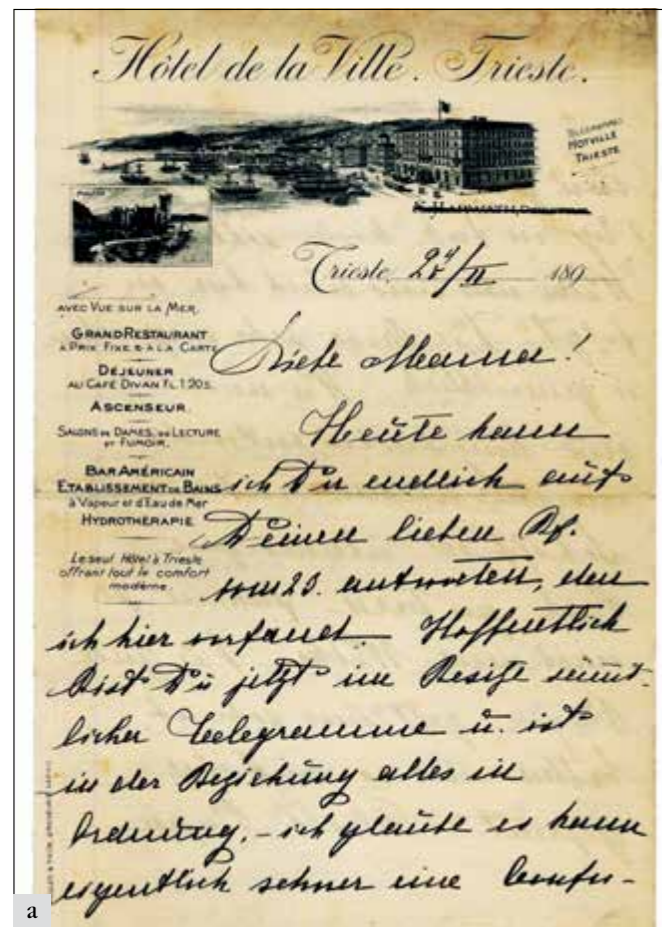 Hôtel de la Ville. Trieste.
TELEGRAMMES
HOTVILLE
TRIESTE
Trieste, 189
AVEC VUE SUR LA MER.
GRAND RESTAURANT
A PRIX FIXE & A LA CARTE
DÉJEUNER
AU CAFÉ DIVAN FL. 1.20 S.
ASCENSEUR.
SALONS DE DAMES, DE LECTURE
ET FUMOIR.
BAR AMÉRICAIN
ETABLISSEMENT DE BAINS
à Vapeur et d'Eau de Mer
HYDROTHERAPIE
Le seul Hôtel à Trieste
offrant tout le comfort
moderne.
Liebe Mama!
Heute kann
ich Dir endlich auf
Deinen lieben Bf.
vom 20. antworten, den
ich hier vorfand. Hoffentlich
bist Du jetzt im Besitze sämt-
licher Telegramme u. ist
in der Beziehung alles in
Ordnung. – ich glaube es kann
eigentlich schwer eine Confu-
a